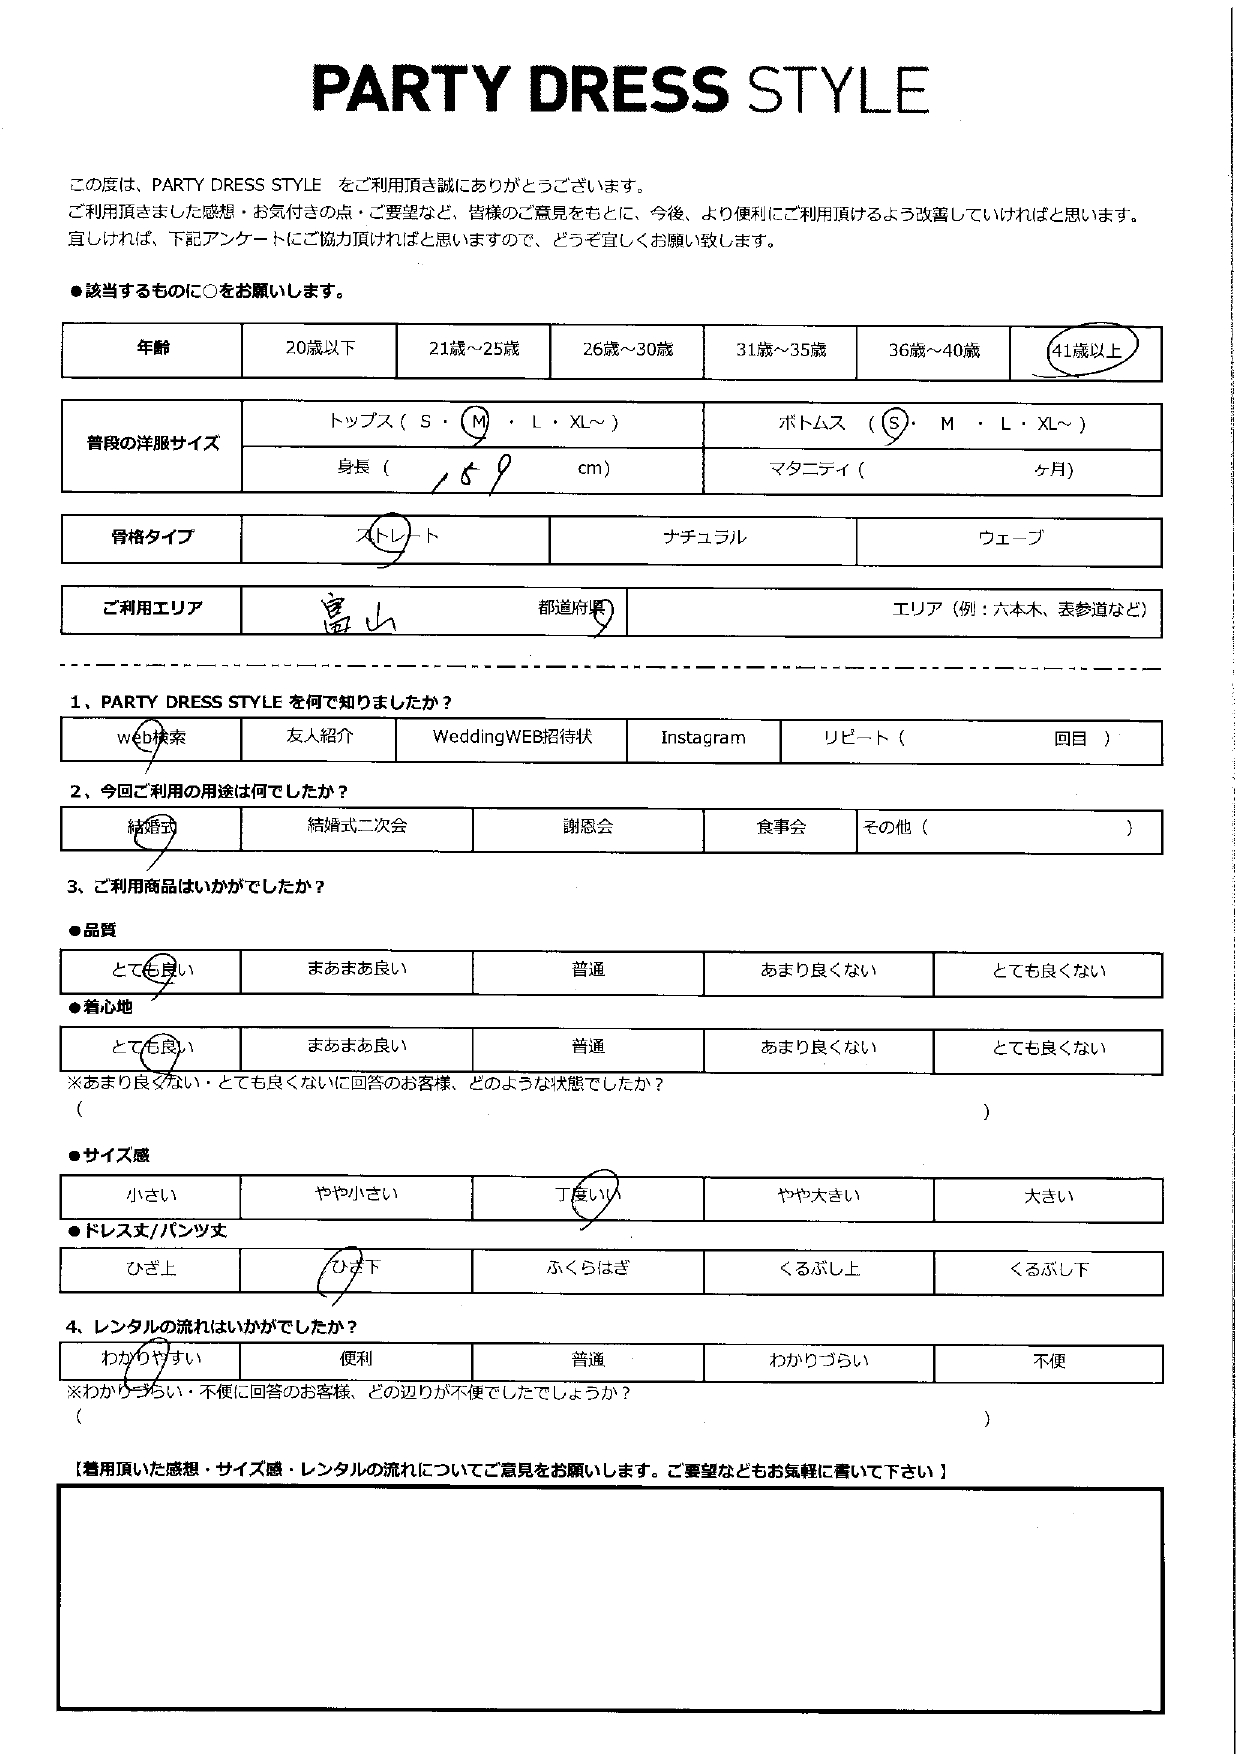 PARTY DRESS STYLE
この度は、PARTY DRESS STYLE をご利用頂き誠にありがとうございます。
ご利用頂きました感想・お気付きの点・ご要望など、皆様のご意見をもとに、今後、より便利にご利用頂けるよう改善していければと思います。
宜しければ、下記アンケートにご協力頂ければと思いますので、どうぞ宜しくお願い致します。
●該当するものに○をお願いします。
年齢 20歳以下 21歳～25歳 26歳～30歳 31歳～35歳 36歳～40歳 41歳以上
普段の洋服サイズ トップス ( S ・ M ・ L ・ XL～ ) ボトムス ( S ・ M ・ L ・ XL～ )
身長 ( 159 cm) マタニティ ( ヶ月)
骨格タイプ ストレート ナチュラル ウェーブ
ご利用エリア 富山 都道府県 エリア（例：六本木、表参道など）
1、PARTY DRESS STYLE を何で知りましたか？
web検索 友人紹介 WeddingWEB招待状 Instagram リピート（ 回目 ）
2、今回ご利用の用途は何でしたか？
結婚式 結婚式二次会 謝恩会 食事会 その他（ ）
3、ご利用商品はいかがでしたか？
●品質
とても良い まあまあ良い 普通 あまり良くない とても良くない
●着心地
とても良い まあまあ良い 普通 あまり良くない とても良くない
※あまり良くない・とても良くないに回答のお客様、どのような状態でしたか？
( )
●サイズ感
小さい やや小さい 丁度いい やや大きい 大きい
●ドレス丈/パンツ丈
ひざ上 ひざ下 ふくらはぎ くるぶし上 くるぶし下
4、レンタルの流れはいかがでしたか？
わかりやすい 便利 普通 わかりづらい 不便
※わかりづらい・不便に回答のお客様、どの辺りが不便でしたでしょうか？
( )
【着用頂いた感想・サイズ感・レンタルの流れについてご意見をお願いします。ご要望などもお気軽に書いて下さい】